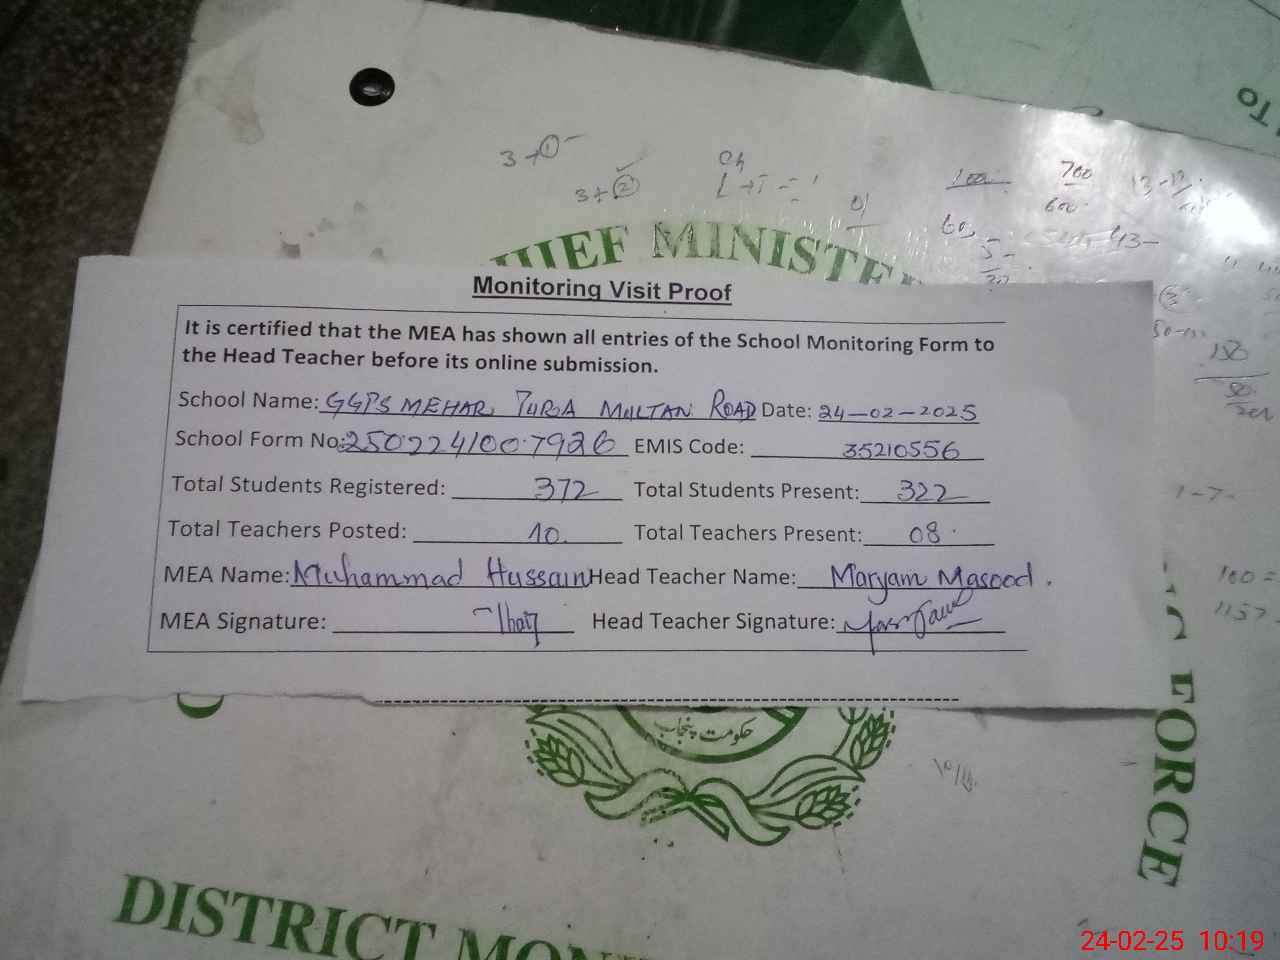 To
3+①-
3+②
Ch
700
600
CHIEF MINISTE
Monitoring Visit Proof
It is certified that the MEA has shown all entries of the School Monitoring Form to
the Head Teacher before its online submission.
School Name: GGPS MEHAR PURA MULTAN ROAD Date: 24-02-2025
School Form No: 2502241007926 EMIS Code: 35210556
Total Students Registered: 372 Total Students Present: 322
Total Teachers Posted: 10 Total Teachers Present: 08
MEA Name: Muhammad Hussain Head Teacher Name: Maryam Masood.
MEA Signature: Head Teacher Signature:
FORCE
حکومت پنجاب
DISTRICT MON
24-02-25 10:19